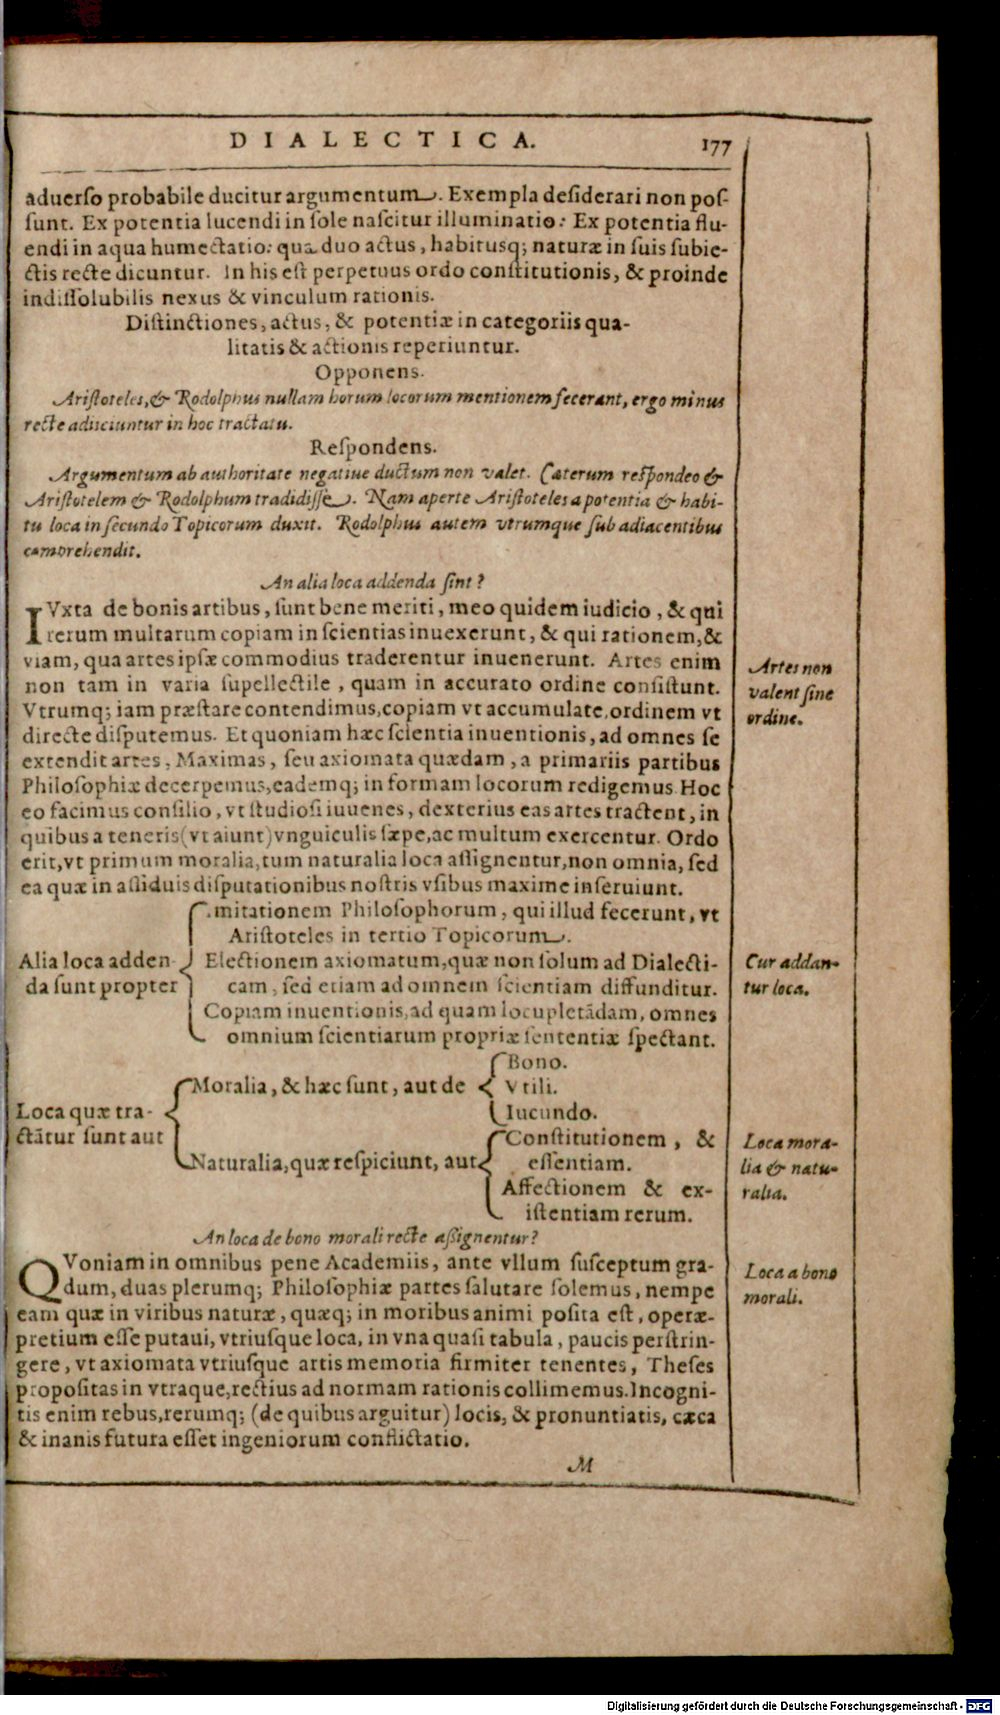 DIALECTICA. 177
aduerſo probabile ducitur argumentum. Exempla deſiderari non poſ-
ſunt. Ex potentia lucendi in ſole naſcitur illuminatio: Ex potentia flu-
endi in aqua humectatio: qua duo actus, habitusq; naturæ in ſuis ſubie-
ctis recte dicuntur. In his eſt perpetuus ordo conſtitutionis, & proinde
indiſſolubilis nexus & vinculum rationis.
Diſtinctiones, actus, & potentiæ in categoriis qua-
litatis & actionis reperiuntur.
Opponens.
Ariſtoteles, & Rodolphus nullam horum locorum mentionem fecerant, ergo minus
recte adiiciuntur in hoc tractatu.
Reſpondens.
Argumentum ab authoritate negatiue ductum non valet. Cæterum reſpondeo &
Ariſtotelem & Rodolphum tradidiſſe. Nam aperte Ariſtoteles a potentia & habi-
tu loca in ſecundo Topicorum duxit. Rodolphus autem vtrumque ſub adiacentibus
comprehendit.
An alia loca addenda ſint?
IVxta de bonis artibus, ſunt bene meriti, meo quidem iudicio, & qui
rerum multarum copiam in ſcientias inuexerunt, & qui rationem, &
viam, qua artes ipſæ commodius traderentur inuenerunt. Artes enim
non tam in varia ſupellectile, quam in accurato ordine conſiſtunt.
Vtrumq; iam præſtare contendimus, copiam vt accumulate, ordinem vt
directe diſputemus. Et quoniam hæc ſcientia inuentionis, ad omnes ſe
extendit artes, Maximas, ſeu axiomata quædam, a primariis partibus
Philoſophiæ decerpemus, eademq; in formam locorum redigemus. Hoc
eo facimus conſilio, vt ſtudioſi iuuenes, dexterius eas artes tractent, in
quibus a teneris (vt aiunt) vnguiculis ſæpe, ac multum exercentur. Ordo
erit, vt primum moralia, tum naturalia loca aſſignentur, non omnia, ſed
ea quæ in aſſiduis diſputationibus noſtris vſibus maxime inſeruiunt.
Artes non
valent ſine
ordine.
Alia loca adden-
da ſunt propter
imitationem Philoſophorum, qui illud fecerunt, vt
Ariſtoteles in tertio Topicorum.
Electionem axiomatum, quæ non ſolum ad Dialecti-
cam, ſed etiam ad omnem ſcientiam diffunditur.
Copiam inuentionis, ad quam locupletādam, omnes
omnium ſcientiarum propriæ ſententiæ ſpectant.
Cur addan-
tur loca.
Loca quæ tra-
ctātur ſunt aut
Moralia, & hæc ſunt, aut de
Bono.
Vtili.
Iucundo.
Naturalia, quæ reſpiciunt, aut
Conſtitutionem, &
eſſentiam.
Affectionem & ex-
iſtentiam rerum.
Loca mora-
lia & natu-
ralia.
An loca de bono morali recte aſſignentur?
QVoniam in omnibus pene Academiis, ante vllum ſuſceptum gra-
dum, duas plerumq; Philoſophiæ partes ſalutare ſolemus, nempe
eam quæ in viribus naturæ, quæq; in moribus animi poſita eſt, operæ-
pretium eſſe putaui, vtriuſque loca, in vna quaſi tabula, paucis perſtrin-
gere, vt axiomata vtriuſque artis memoria firmiter tenentes, Theſes
propoſitas in vtraque, rectius ad normam rationis collimemus. Incogni-
tis enim rebus, rerumq; (de quibus arguitur) locis, & pronuntiatis, cæca
& inanis futura eſſet ingeniorum conflictatio.
Loca a bono
morali.
M
Digitalisierung gefördert durch die Deutsche Forschungsgemeinschaft - DFG